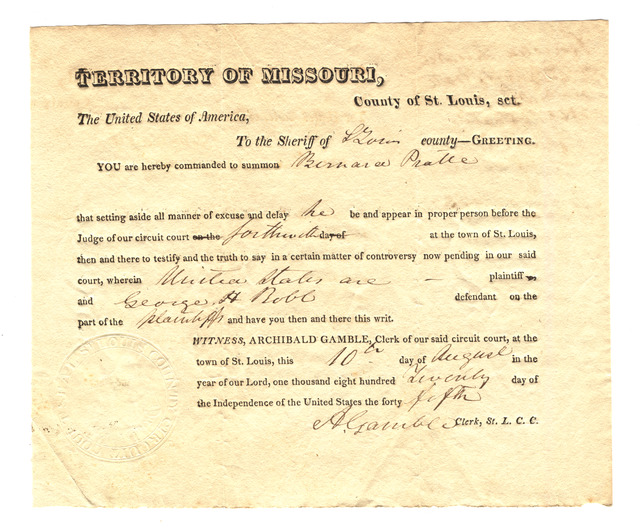 TERRITORY OF MISSOURI,
County of St. Louis, sct.
The United States of America,
To the Sheriff of St Louis county—GREETING.
YOU are hereby commanded to summon Bernard Pratte
that setting aside all manner of excuse and delay he be and appear in proper person before the
Judge of our circuit court on the forthwith day of at the town of St. Louis,
then and there to testify and the truth to say in a certain matter of controversy now pending in our said
court, wherein United States are — plaintiff
and George H Robb defendant on the
part of the plaintiffs and have you then and there this writ.
WITNESS, ARCHIBALD GAMBLE, Clerk of our said circuit court, at the
town of St. Louis, this 10th day of August in the
year of our Lord, one thousand eight hundred Twenty day of
the Independence of the United States the forty fifth
A Gamble Clerk, St. L. C. C.